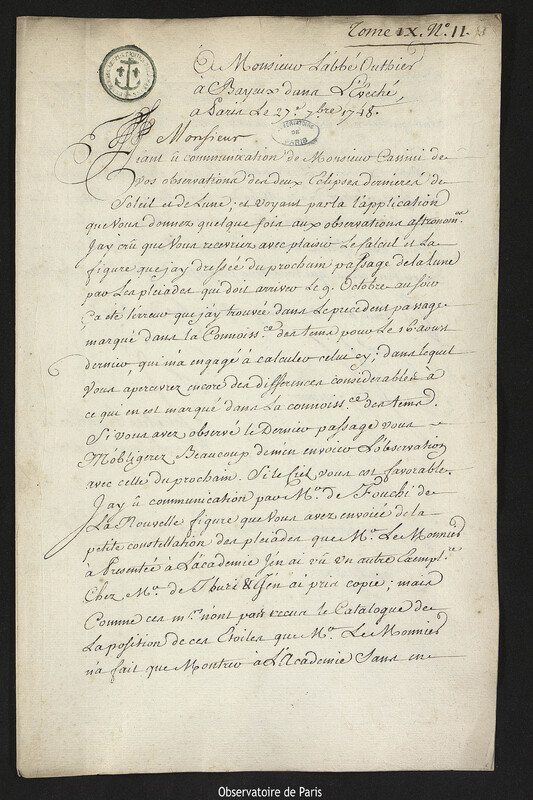 Tome IX. N.º 11.
A Monsieur L'abbé Outhier
à Bayeux dans L'Evêché
a Paris Le 27.e 7.bre 1748.
OBSERVATOIRE DE PARIS
Monsieur
Aiant û communication de Monsieur Cassini de
vos observations des deux Eclipses dernieres de
Soleil et de Lune; et voyant par la l'application
que Vous donnez quelque fois aux observations astronom.es
Jay crû que Vous recevriez avec plaisir Le Calcul et La
figure que jay dressée du prochain passage de la Lune
par Les pleiades qui doit arriver Le 9. Octobre au soir
Ca été lerreur que j'ay trouvée dans Le precedent passage
marqué dans la Connoiss.ce des tems pour Le 16 aoust
dernier, qui m'a engagé à calculer celui cy; dans lequel
Vous apercevrez encore des differences considerables à
ce qui en est marqué dans La connoiss.ce des tems.
Si vous avez observé le Dernier passage vous
M'obligerez Beaucoup de m'en envoier L'observation
avec celle du prochain. Si le Ciel vous est favorable.
Jay û communication par M.r de Fouchi de
La Nouvelle figure que Vous avez envoiée de la
petite constellation des pleiades que M.r Le Monnier
à Presentée à L'academie J'en ai vû un autre Exempl.re
Chez M.r de Thuri & J'en ai pris copie; mais
Comme ces m.rs n'ont pas receu le Catalogue de
La position de ces Etoiles que M.r Le Monnier
n'a fait que Montrer à L'Academie Sans en
Observatoire de Paris